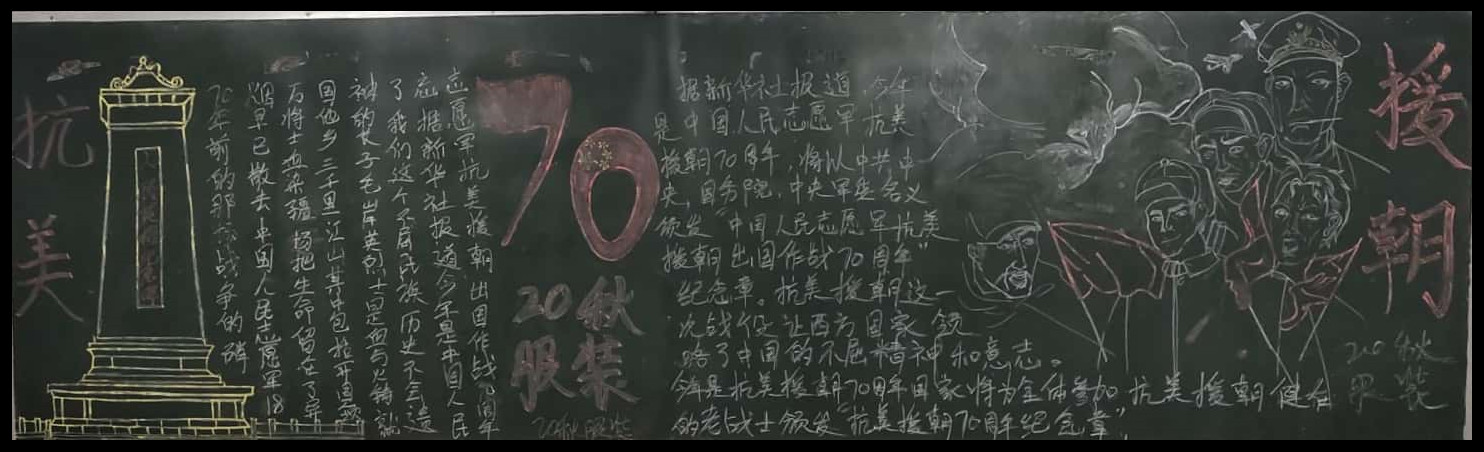 抗美
70年前的那场战争的硝
烟早已散去中国人民志愿军18
万将士血染疆场把生命留在了异
国他乡三千里江山其中包括开国领
袖的长子毛岸英烈士是血与火铸就
了我们这个不屈民族历史不会遗
忘据新华社报道今年是中国人民
志愿军抗美援朝出国作战70周年
70
20秋
服装
20秋服装
据新华社报道,今年
是中国人民志愿军抗美
援朝70周年,将以中共中
央,国务院,中央军委含义
颁发"中国人民志愿军抗美
援朝出国作战70周年"
纪念章。抗美援朝这一
次战役让西方国家领
略了中国的不屈精神和意志。
今年是抗美援朝70周年国家将为全体参加抗美援朝健在
的老战士颁发"抗美援朝70周年纪念章"。
援朝
20秋
服装